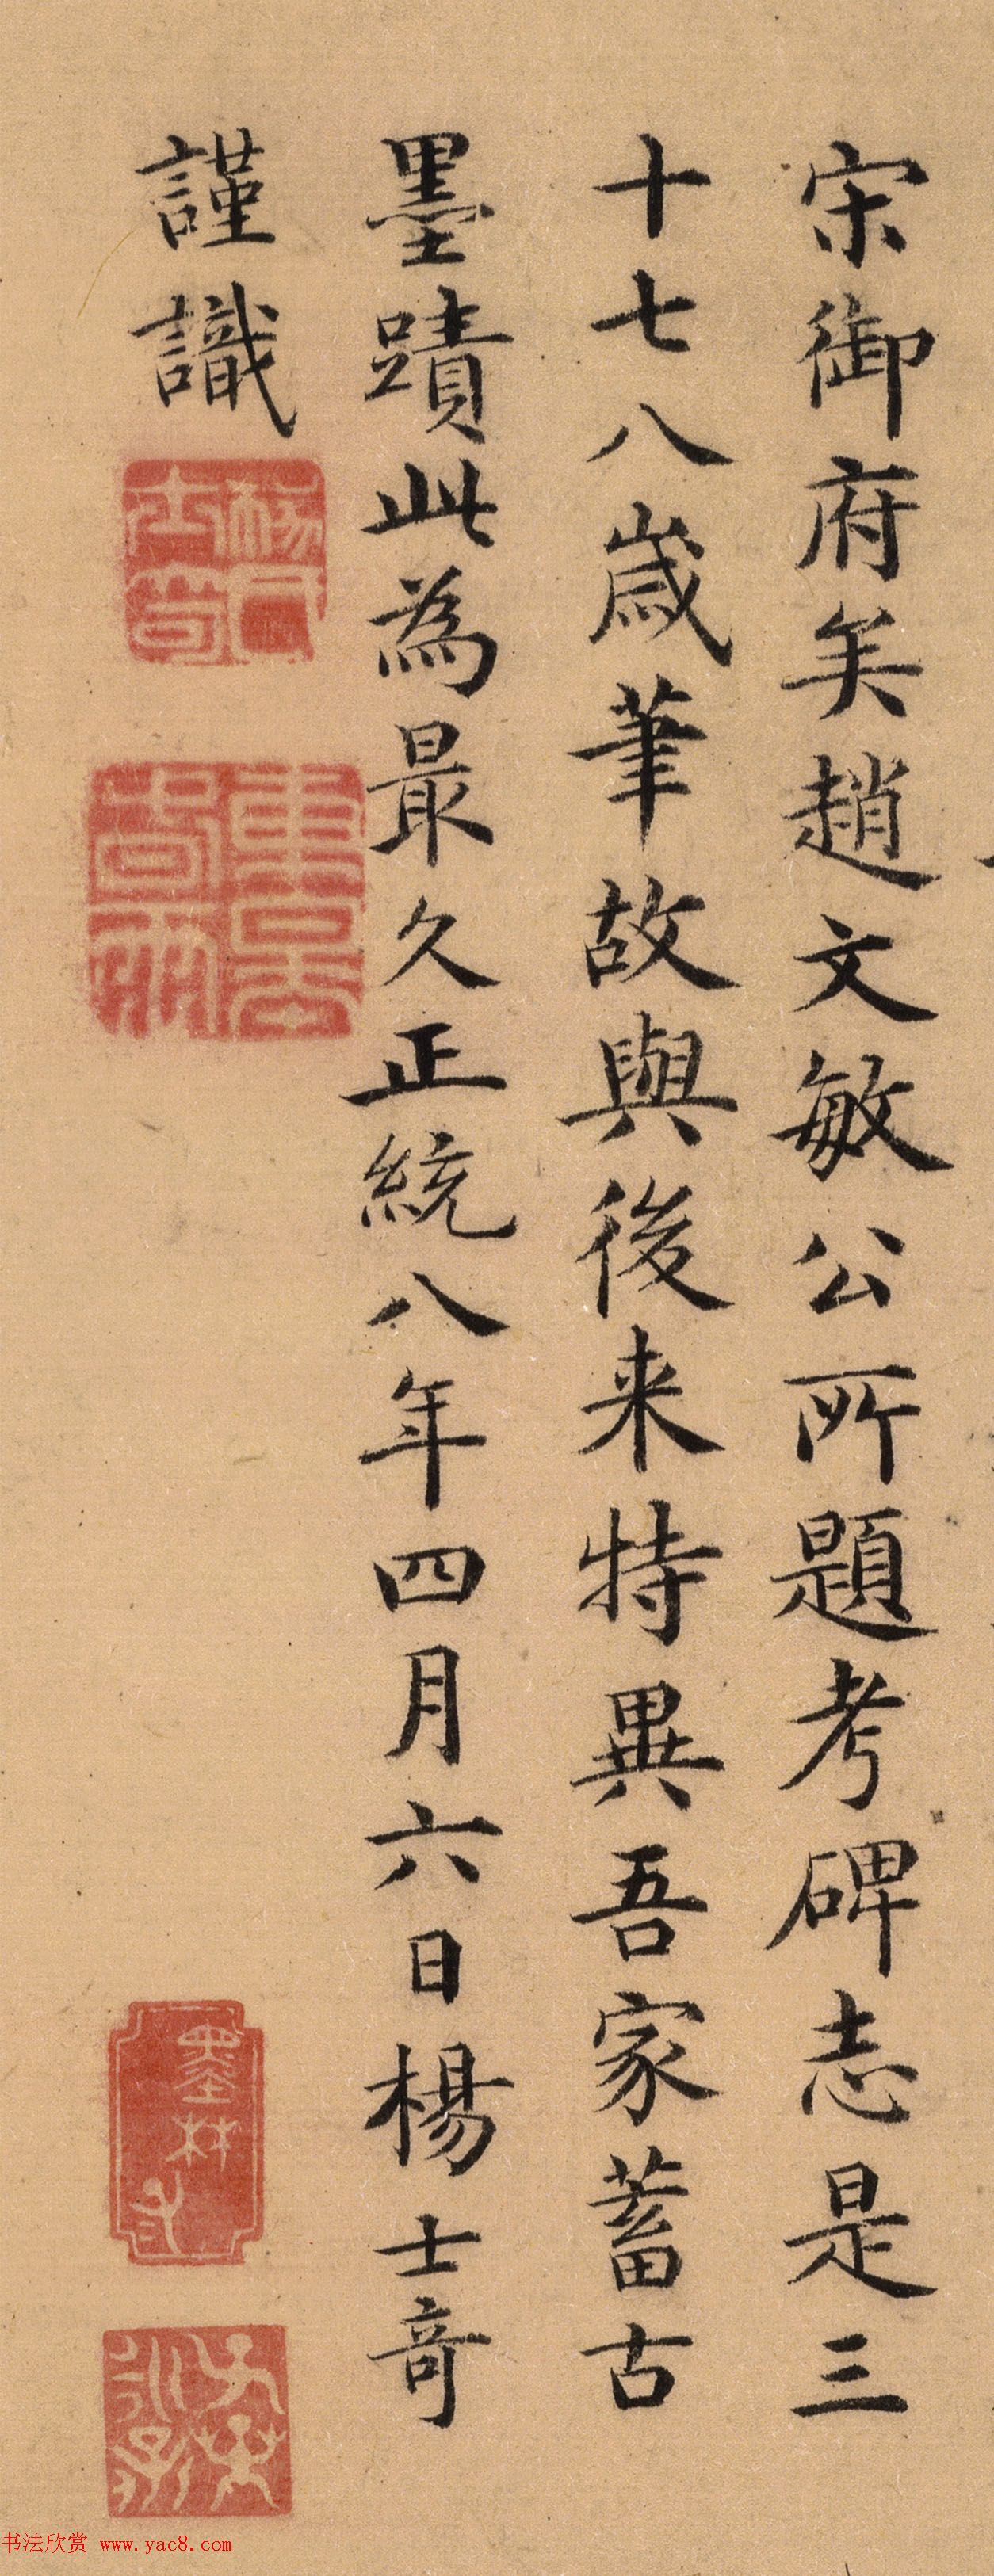 宋御府矣趙文敏公所題考碑志是三
十七八歲筆故與後来特異吾家蓄古
墨蹟此為最久正統八年四月六日楊士奇
謹識
楊氏士奇
墨林父
子孫永
书法欣赏 www.yac8.com